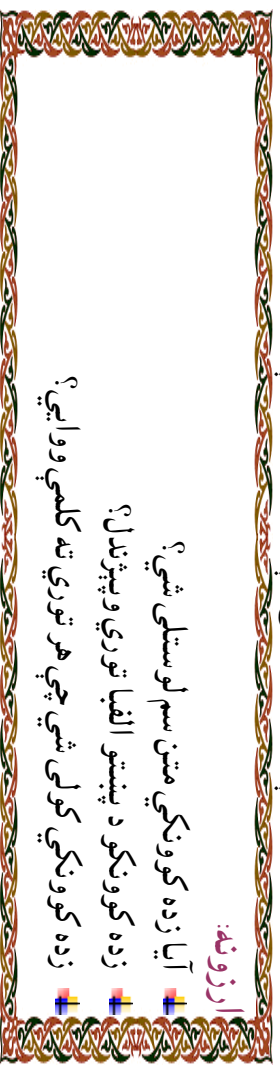 ارزونه:
آيا زده کوونکي متن سم لوستلی شي؟
زده کوونکو د پښتو الفبا توري وپېژندل؟
زده کوونکي کولی شي چې هر توري ته کلمې ووايي؟